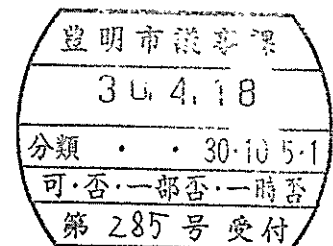 豊明市 課
30.4.18
分類 ・ ・ 30・10 5・1
可・否・一部否・一時否
第 285 号 受付